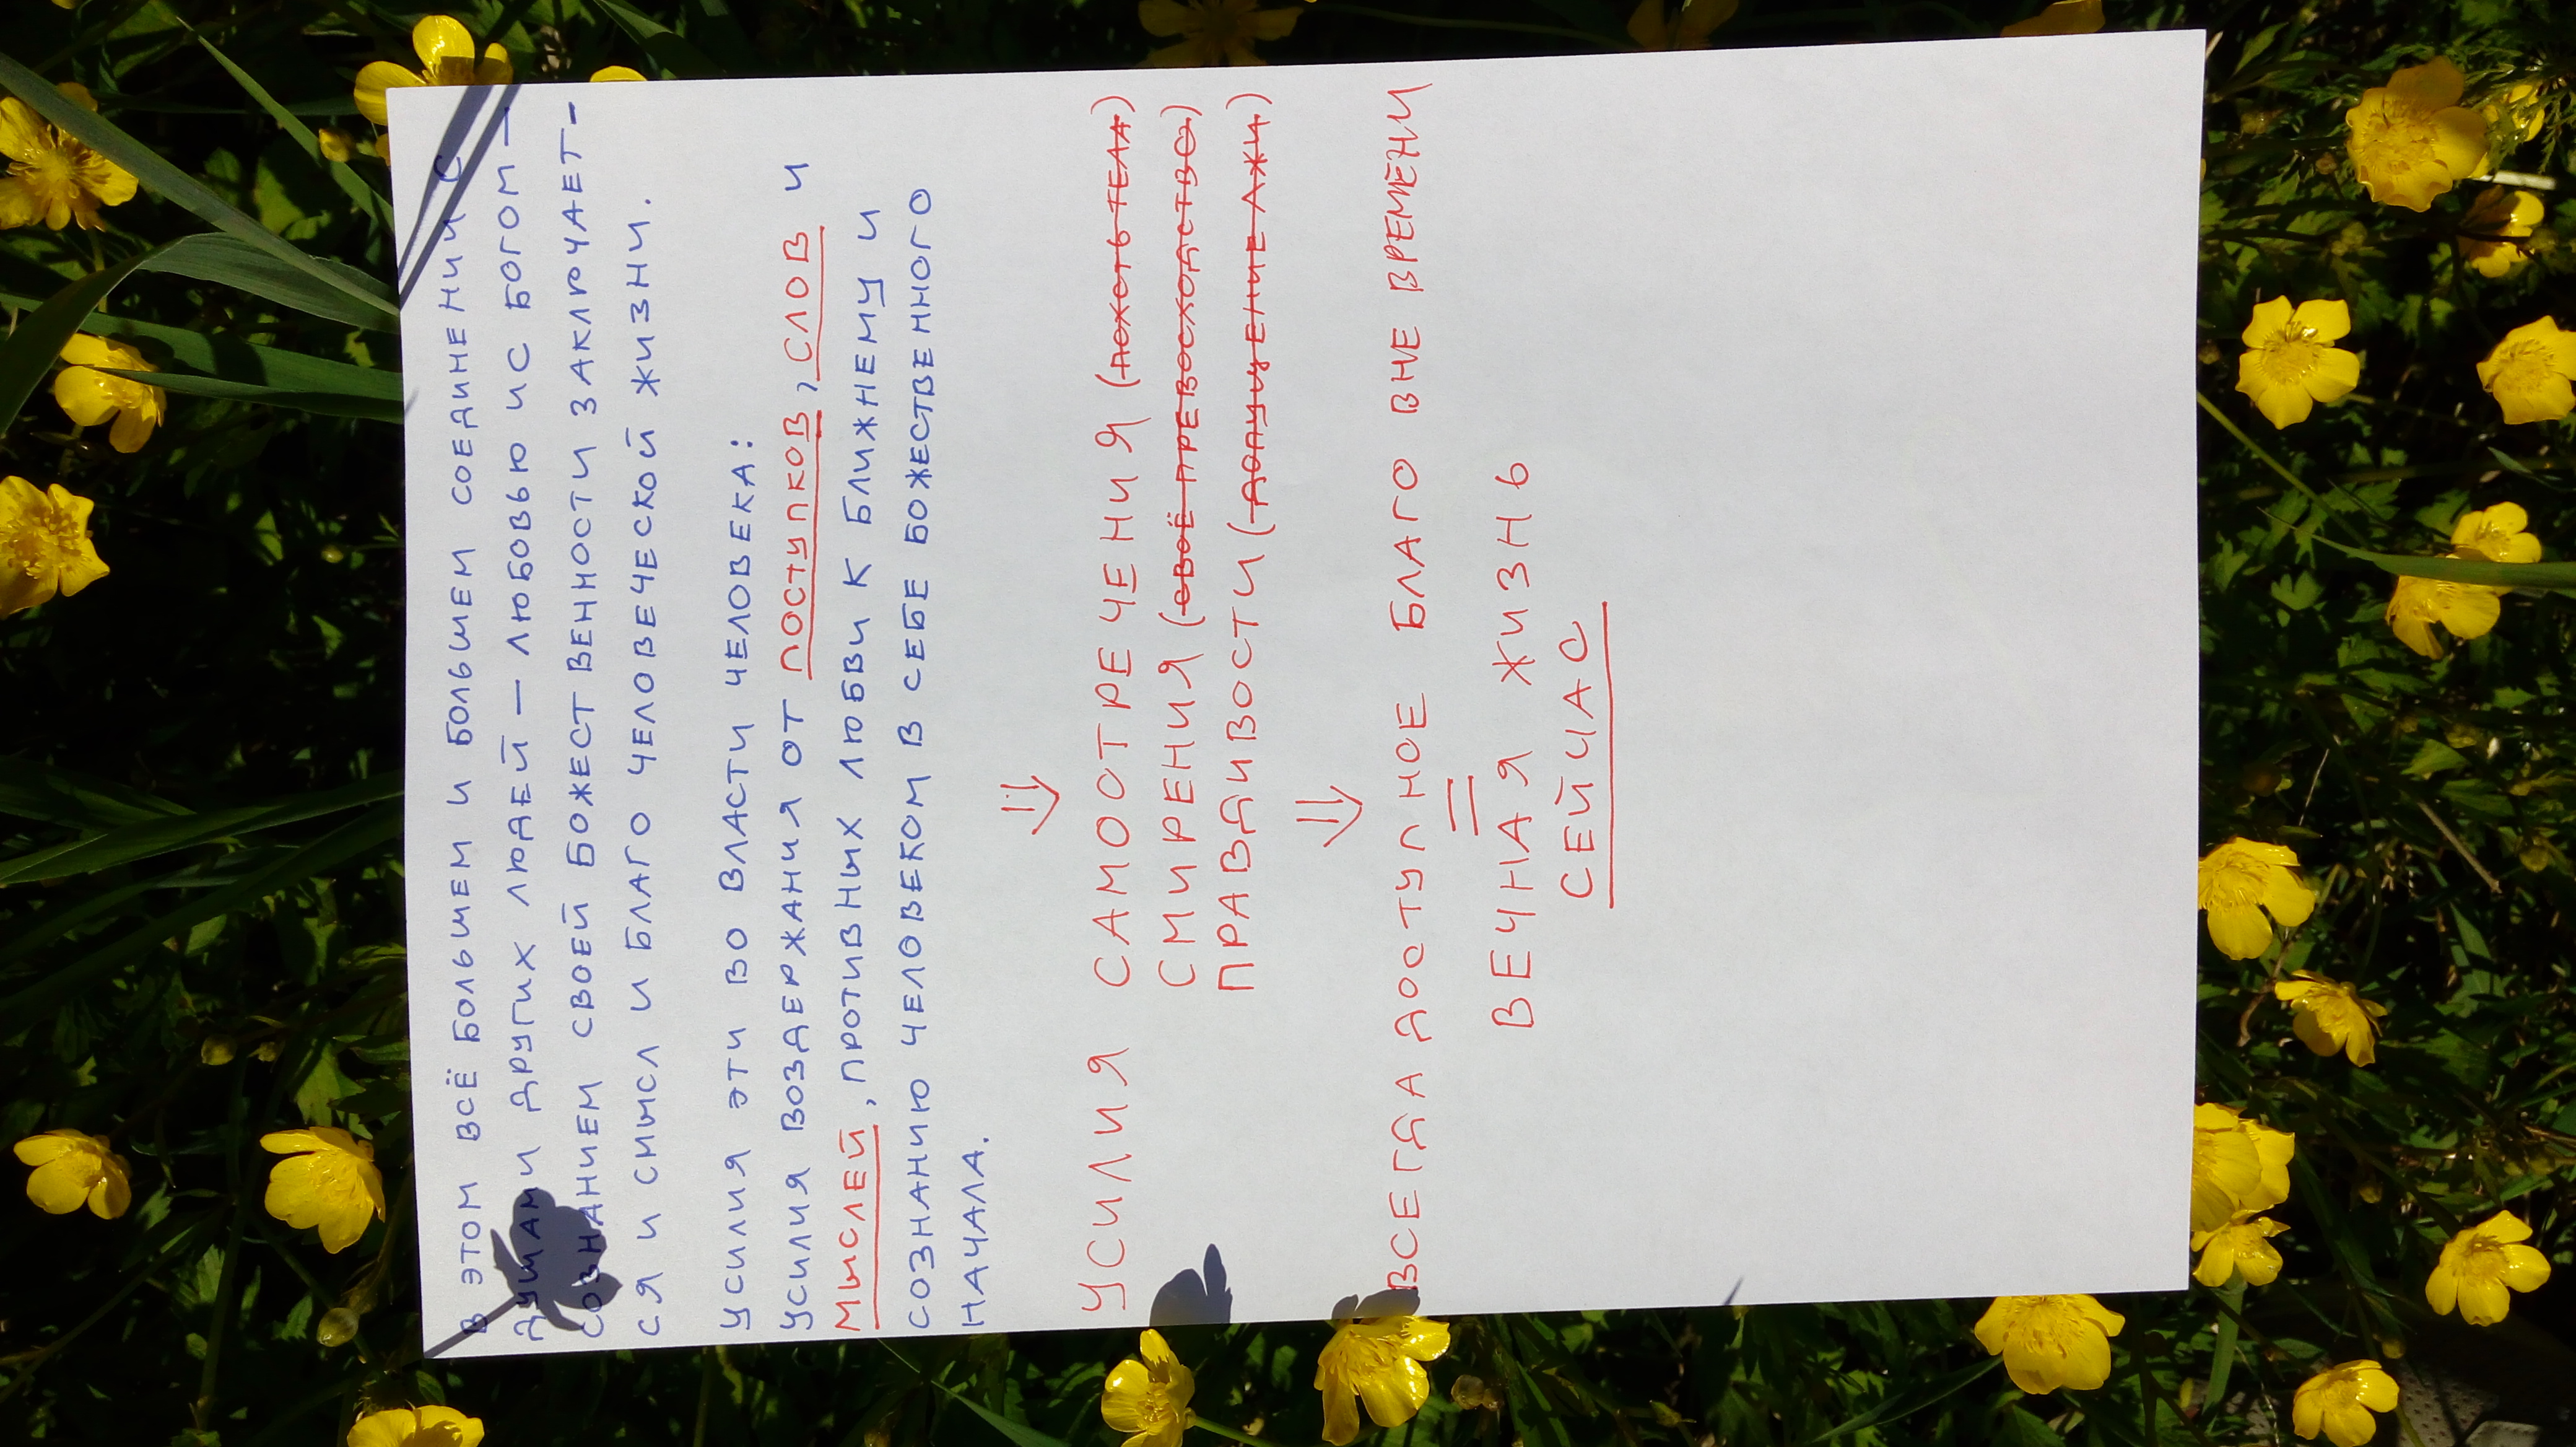 В ЭТОМ ВСЁ БОЛЬШЕМ И БОЛЬШЕМ СОЕДИНЕНИИ С
ДУШАМИ ДРУГИХ ЛЮДЕЙ — ЛЮБОВЬЮ И С БОГОМ —
СОЗНАНИЕМ СВОЕЙ БОЖЕСТВЕННОСТИ ЗАКЛЮЧАЕТ-
СЯ И СМЫСЛ И БЛАГО ЧЕЛОВЕЧЕСКОЙ ЖИЗНИ.
УСИЛИЯ ЭТИ ВО ВЛАСТИ ЧЕЛОВЕКА:
УСИЛИЯ ВОЗДЕРЖАНИЯ ОТ ПОСТУПКОВ, СЛОВ И
МЫСЛЕЙ, ПРОТИВНЫХ ЛЮБВИ К БЛИЖНЕМУ И
СОЗНАНИЮ ЧЕЛОВЕКОМ В СЕБЕ БОЖЕСТВЕННОГО
НАЧАЛА.
⇓
УСИЛИЯ САМООТРЕЧЕНИЯ (ПОХОТЬ ТЕЛА)
СМИРЕНИЯ (СВОЁ ПРЕВОСХОДСТВО)
ПРАВДИВОСТИ (ДОПУЩЕНИЕ ЛЖИ)
⇓
ВСЕГДА ДОСТУПНОЕ БЛАГО ВНЕ ВРЕМЕНИ
=
ВЕЧНАЯ ЖИЗНЬ
СЕЙЧАС